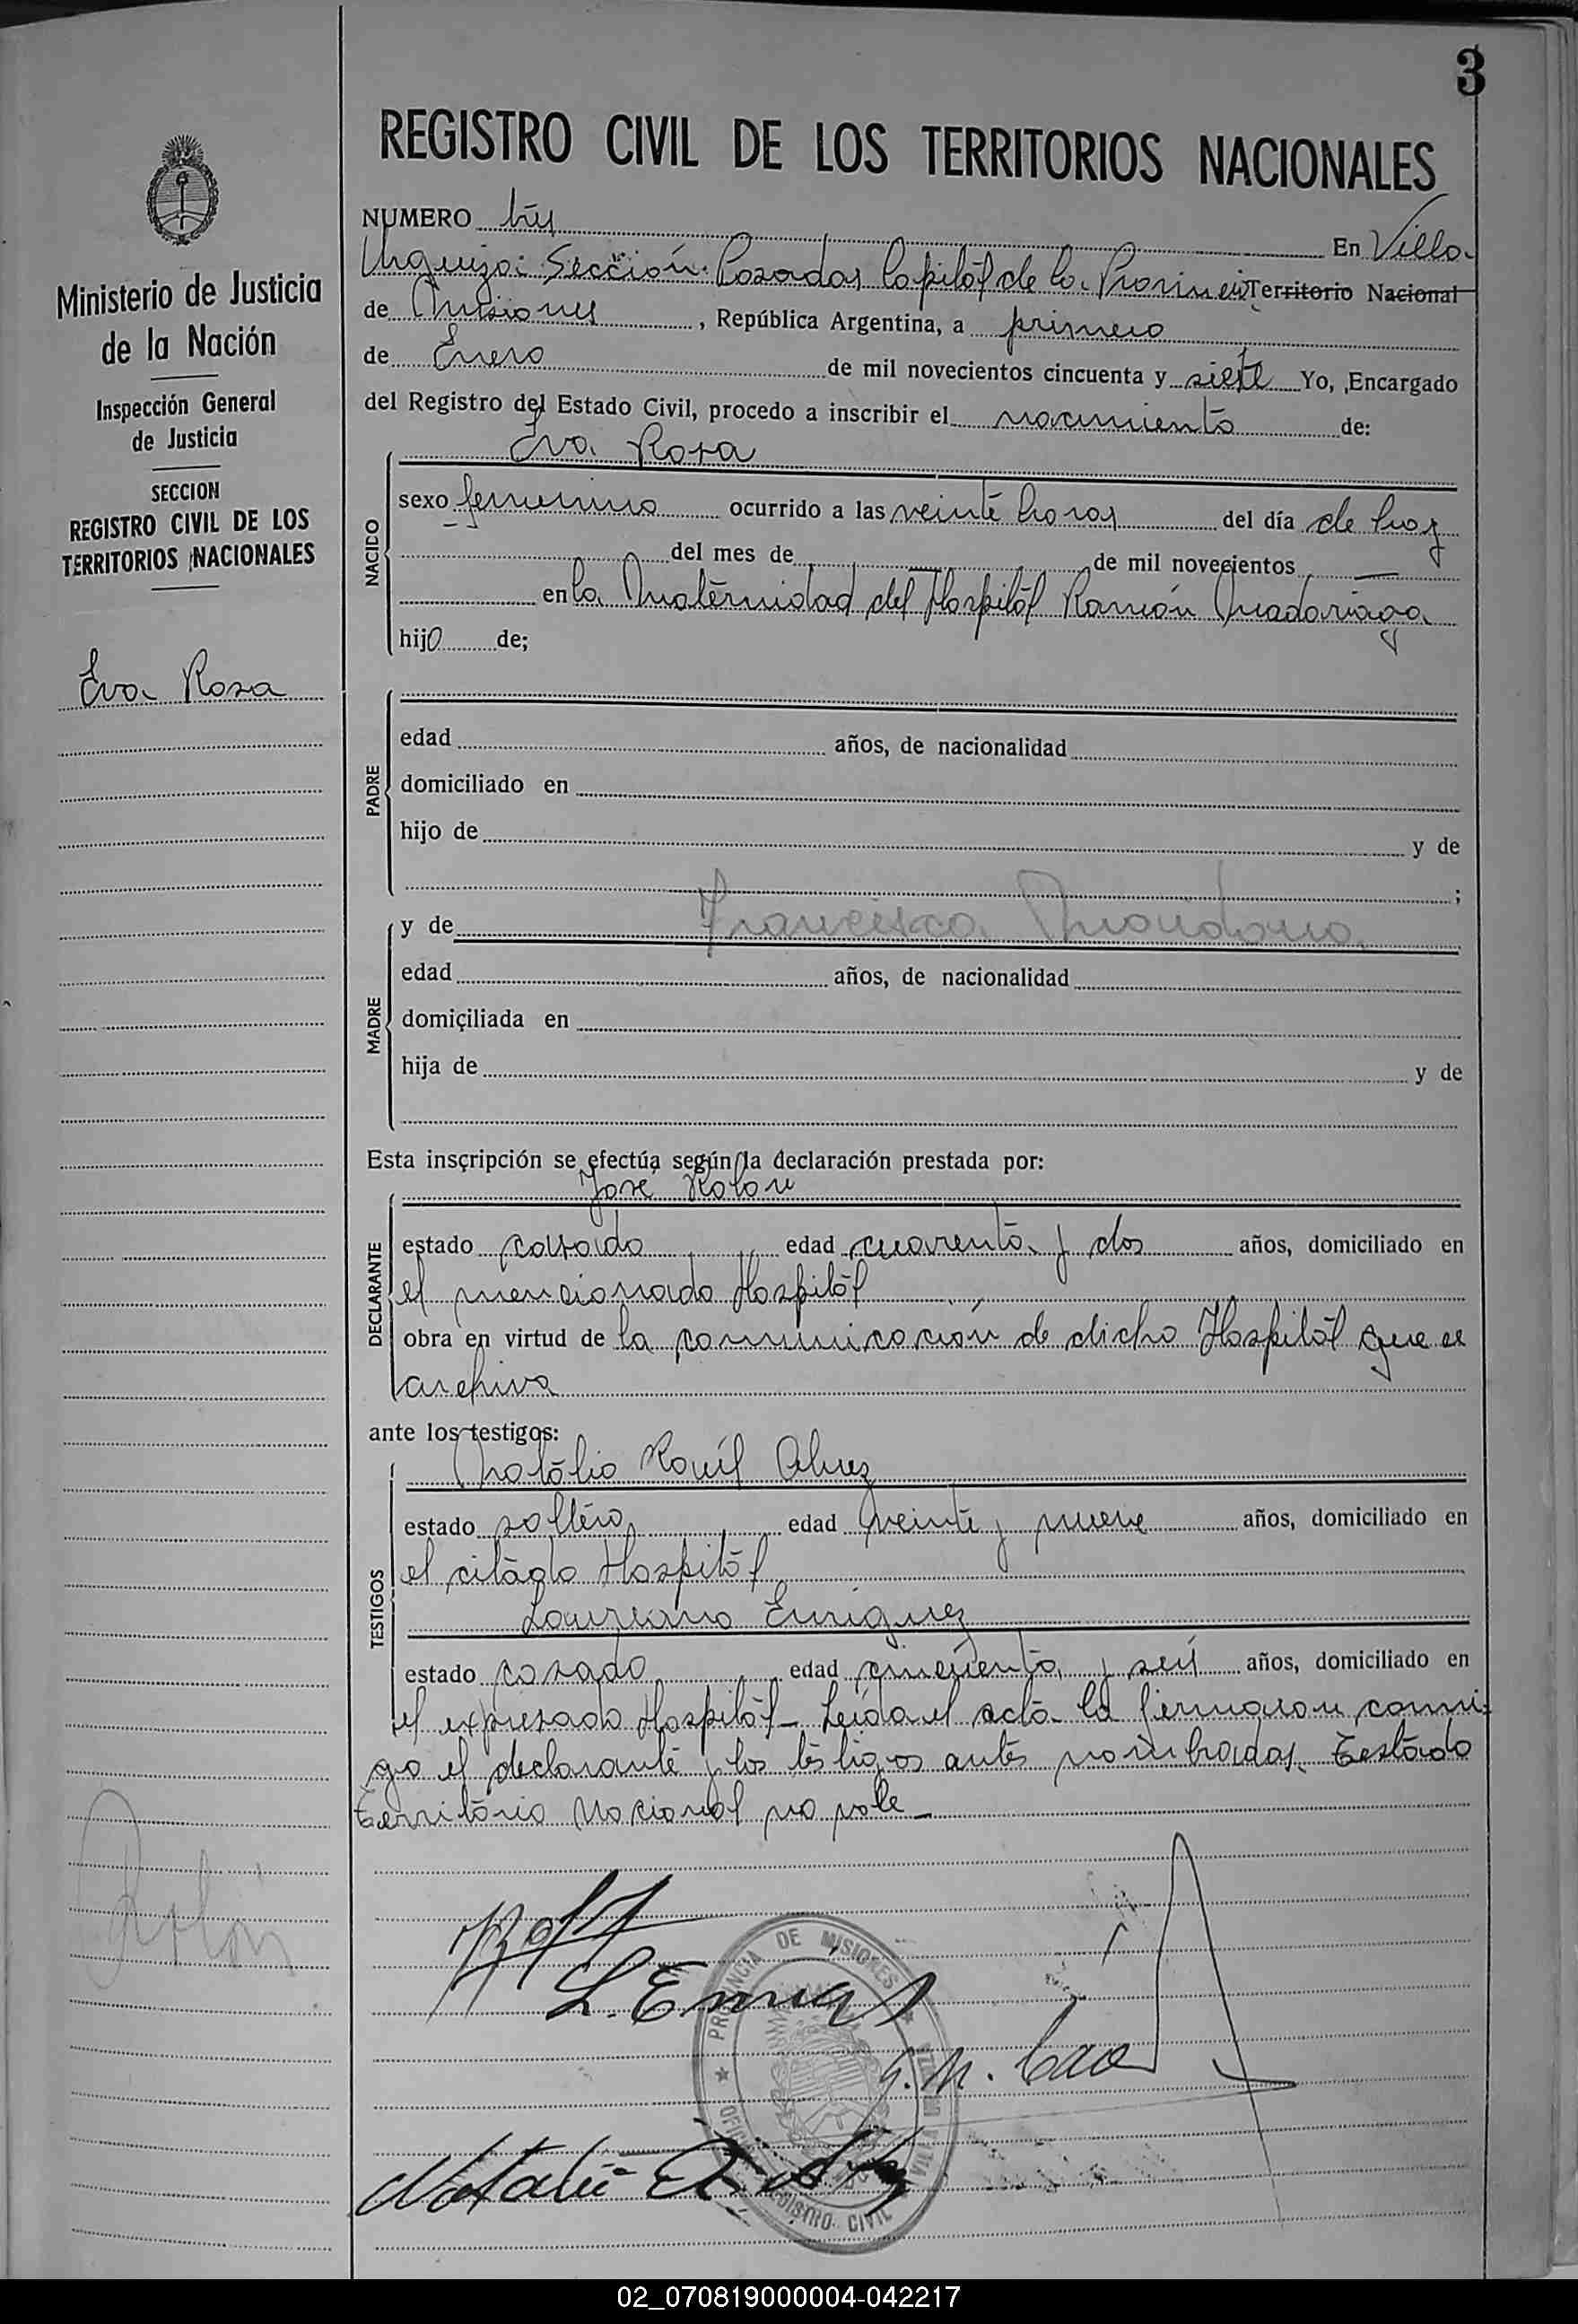 3
REGISTRO CIVIL DE LOS TERRITORIOS NACIONALES
Ministerio de Justicia
de la Nación
Inspección General
de Justicia
SECCION
REGISTRO CIVIL DE LOS
TERRITORIOS NACIONALES
Eva Rosa
NUMERO tres En Villa
Urquiza Sección Posadas Capital de la Provincia Territorio Nacional
de Misiones, República Argentina, a primero
de Enero de mil novecientos cincuenta y siete Yo, Encargado
del Registro del Estado Civil, procedo a inscribir el nacimiento de:
NACIDO
Eva Rosa
sexo femenino ocurrido a las veinte horas del día de hoy
del mes de de mil novecientos
en la Maternidad del Hospital Ramón Madariaga
hijo de;
PADRE
edad años, de nacionalidad
domiciliado en
hijo de y de
;
MADRE
y de Francisca
edad años, de nacionalidad
domiciliada en
hija de y de
Esta inscripción se efectúa según la declaración prestada por:
DECLARANTE
José Rolón
estado casado edad cuarenta y dos años, domiciliado en
el mencionado Hospital
obra en virtud de la comunicación de dicho Hospital que se
archiva
ante los testigos:
TESTIGOS
Natalio Raúl
estado soltero edad veinte y nueve años, domiciliado en
el citado Hospital
Laureano Enriquez
estado casado edad cincuenta y seis años, domiciliado en
el expresado Hospital Leída el acta la firmaron conmi-
go el declarante y los testigos antes nombrados. Testado
Territorio Nacional no vale
Rolón
L. Enriq
PROVINCIA DE MISIONES
REGISTRO CIVIL
02_070819000004-042217